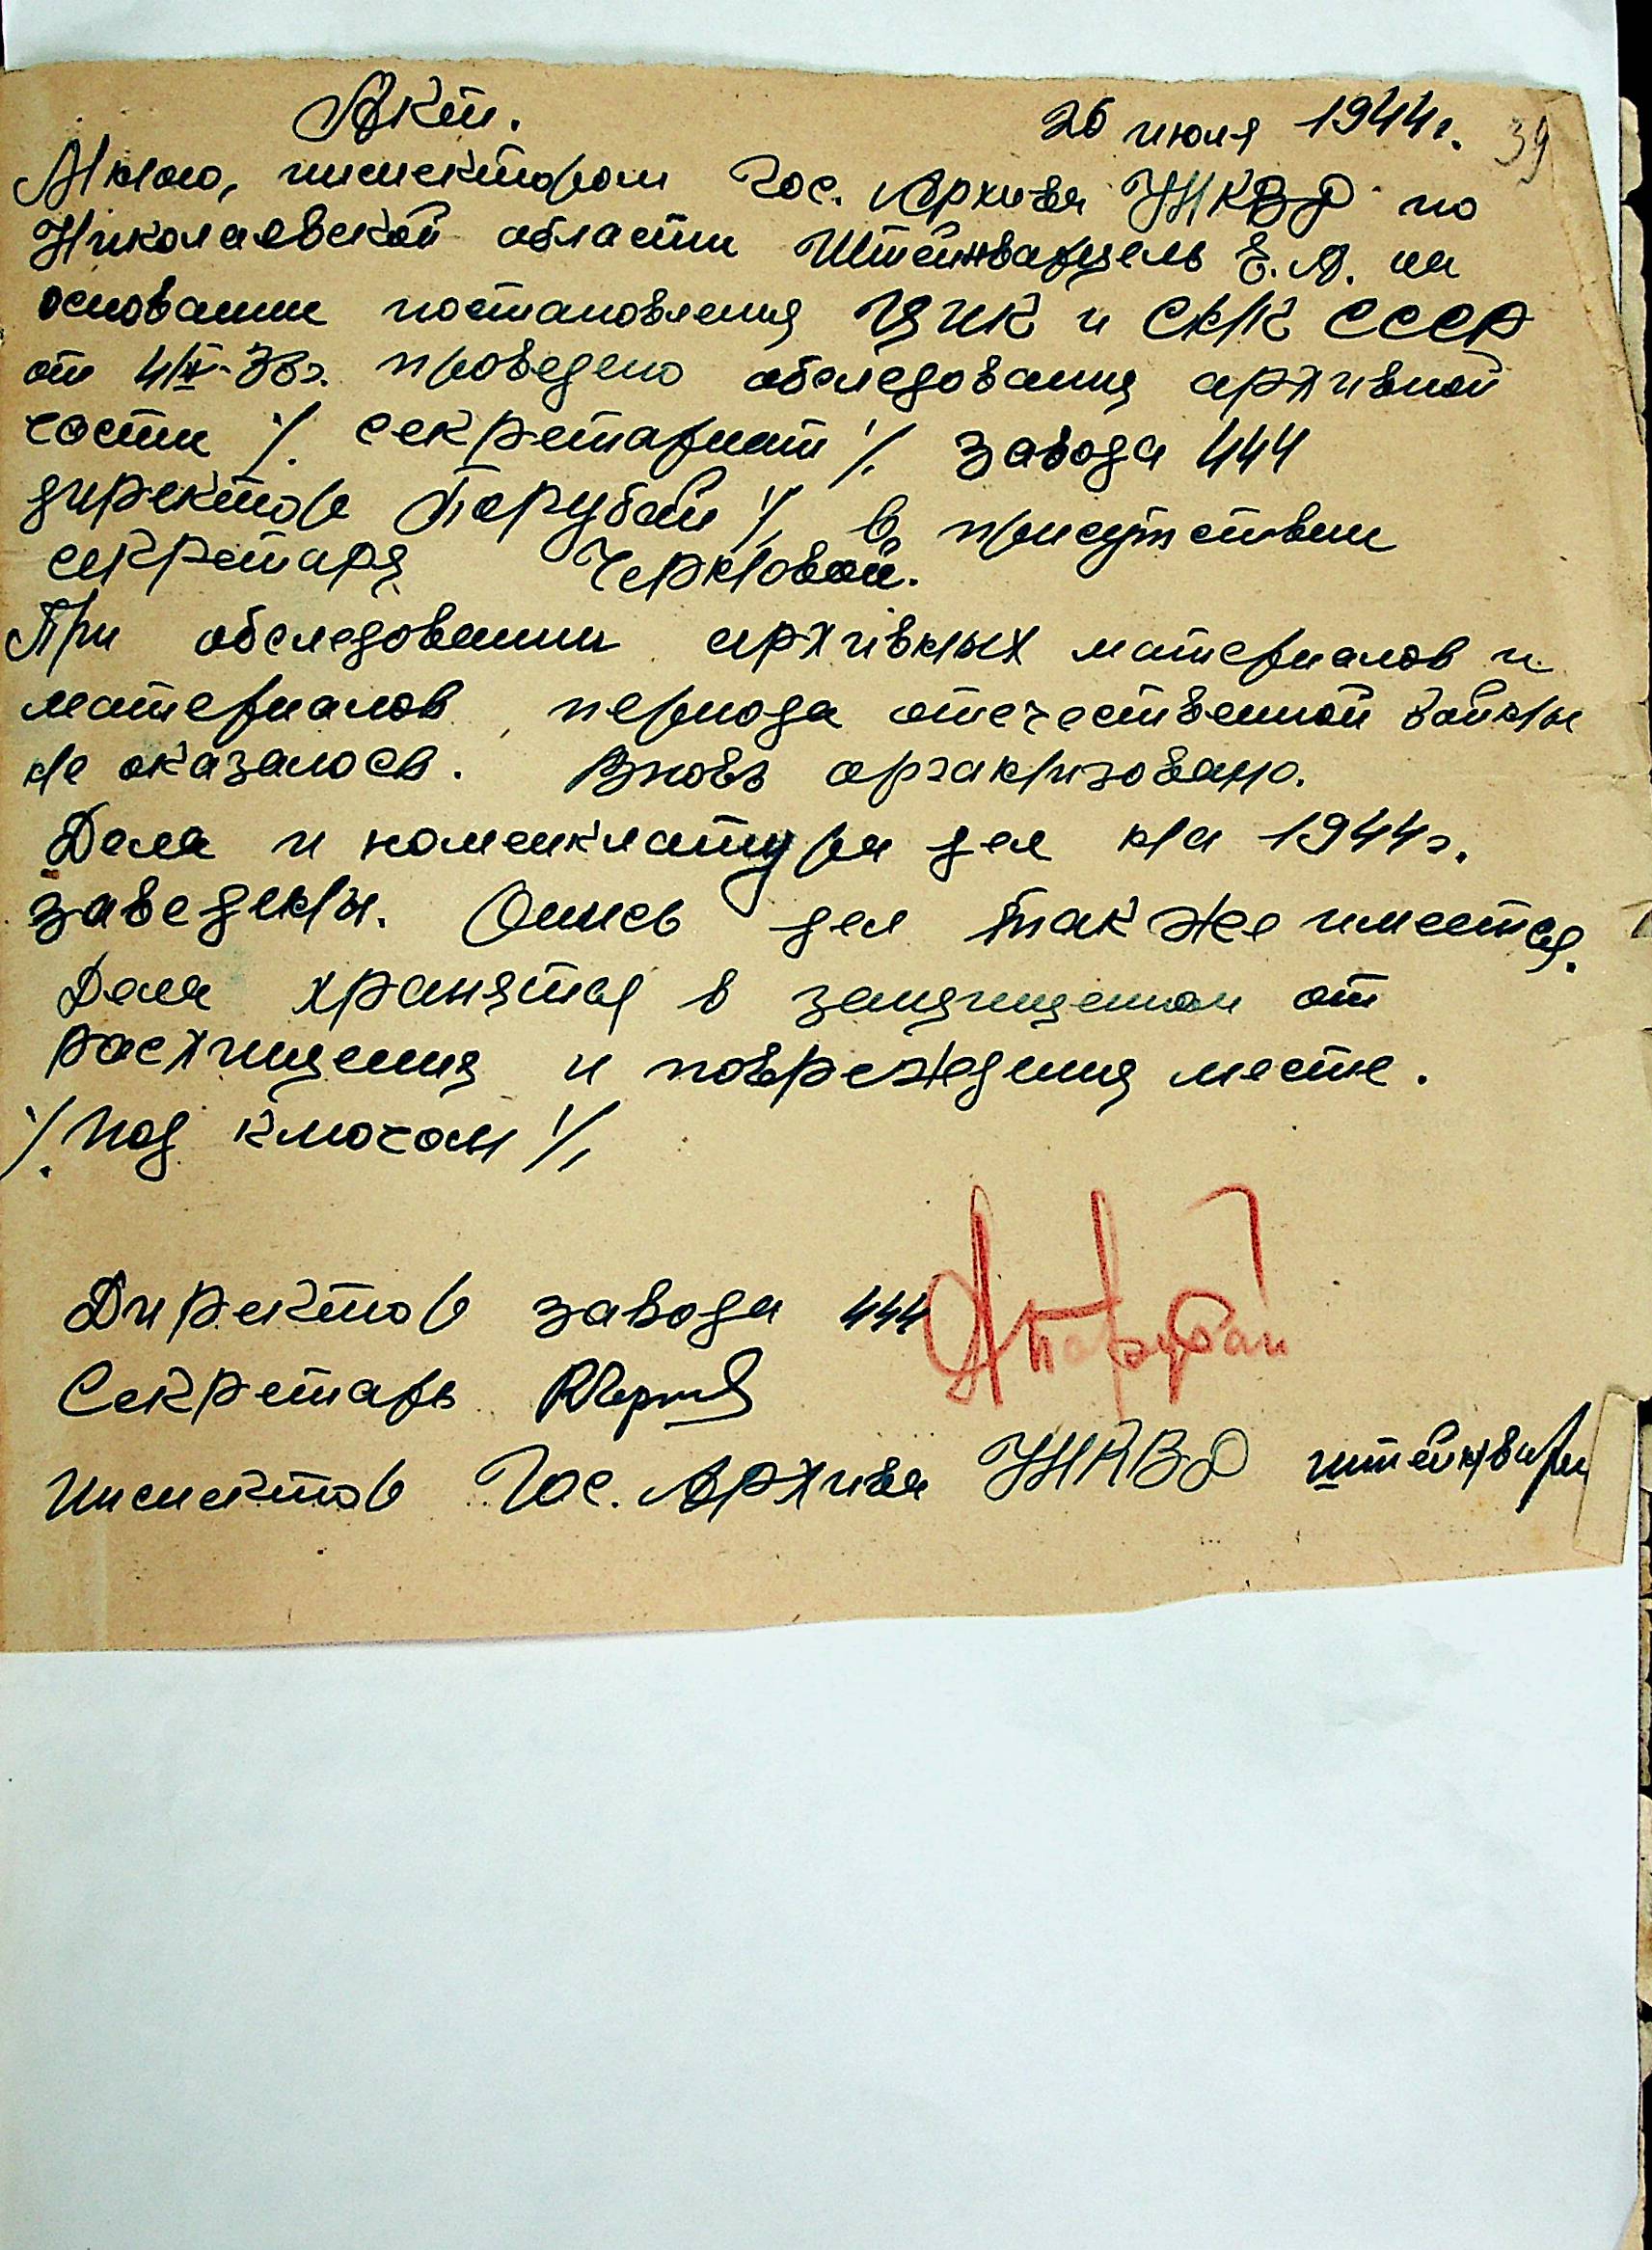 Акт. 26 июля 1944г. 39
Мною, инспектором Гос. Архива УНКВД по
Николаевской области Штейнварцель Е.А. на
основании постановления ЦИК и СНК СССР
от проведено обследования архивной
части /. секретариат /. завода 444
директор Порубай /. в присутствии
секретаря Черновой.
При обследовании архивных материалов и
материалов периода отечественной войны
не оказалось. Вновь организовано.
Дела и номенклатура дел на 1944г.
заведены. Опись дел так же имеется.
Дела хранятся в защищенном от
расхищения и повреждения месте.
/. под ключом /.
Директор завода 444 АПорубай
Секретарь
Инспектор Гос. Архива УНКВД